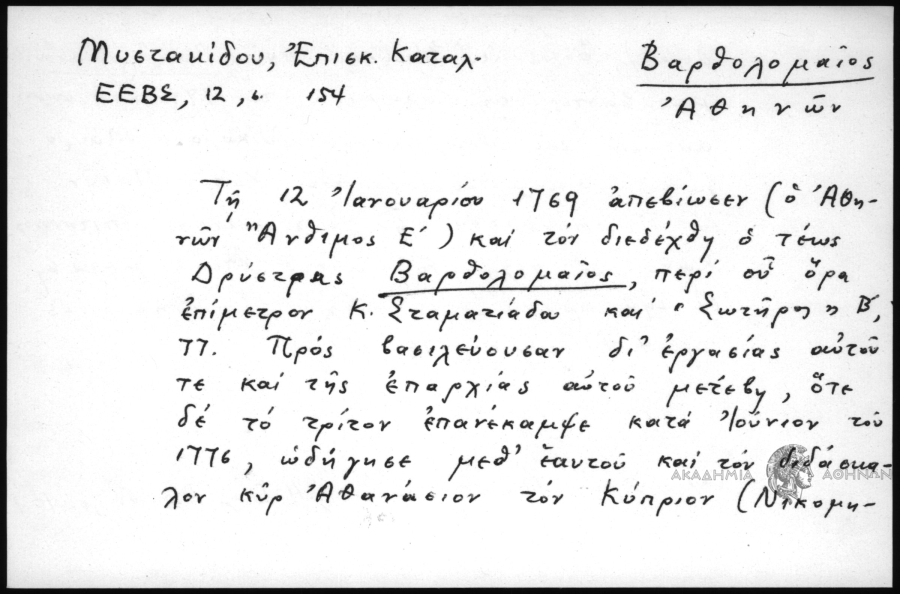 Μυστακίδου, Ἐπισκ. Καταλ.
Βαρθολομαῖος
ΕΕΒΣ, 12, σ. 154
Ἀθηνῶν
Τῇ 12 Ἰανουαρίου 1769 ἀπεβίωσεν (ὁ Ἀθη-
νῶν Ἄνθιμος Ε΄) καί τόν διεδέχθη ὁ τέως
Δρύστρας Βαρθολομαῖος, περί οὗ ὅρα
ἐπίμετρον Κ. Σταματιάδου καί "Σωτῆρος" Β΄,
77. Πρός βασιλεύουσαν δι' ἐργασίας αὐτοῦ
τε καί τῆς ἐπαρχίας αὐτοῦ μετέβη, ὅτε
δέ τό τρίτον ἐπανέκαμψε κατά Ἰούνιον τοῦ
1776, ὡδήγησε μεθ' ἑαυτοῦ καί τόν διδάσκα-
λον κύρ Ἀθανάσιον τόν Κύπριον (Νικομη-
ΑΚΑΔΗΜΙΑ ΑΘΗΝΩΝ